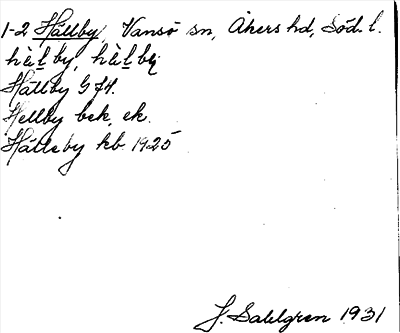 1-2 Hällby, Vansö sn, Åkers hd, Söd. l.
hä̀lby, hä̀lbı̨
Hällby G 74.
Hellby bek. ek.
Hälleby kb. 1925
J. Sahlgren 1931